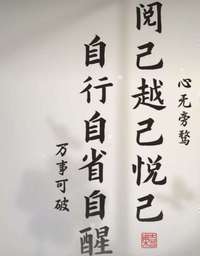 阅己越己悦己
自行自省自醒
心无旁骛
万事可破